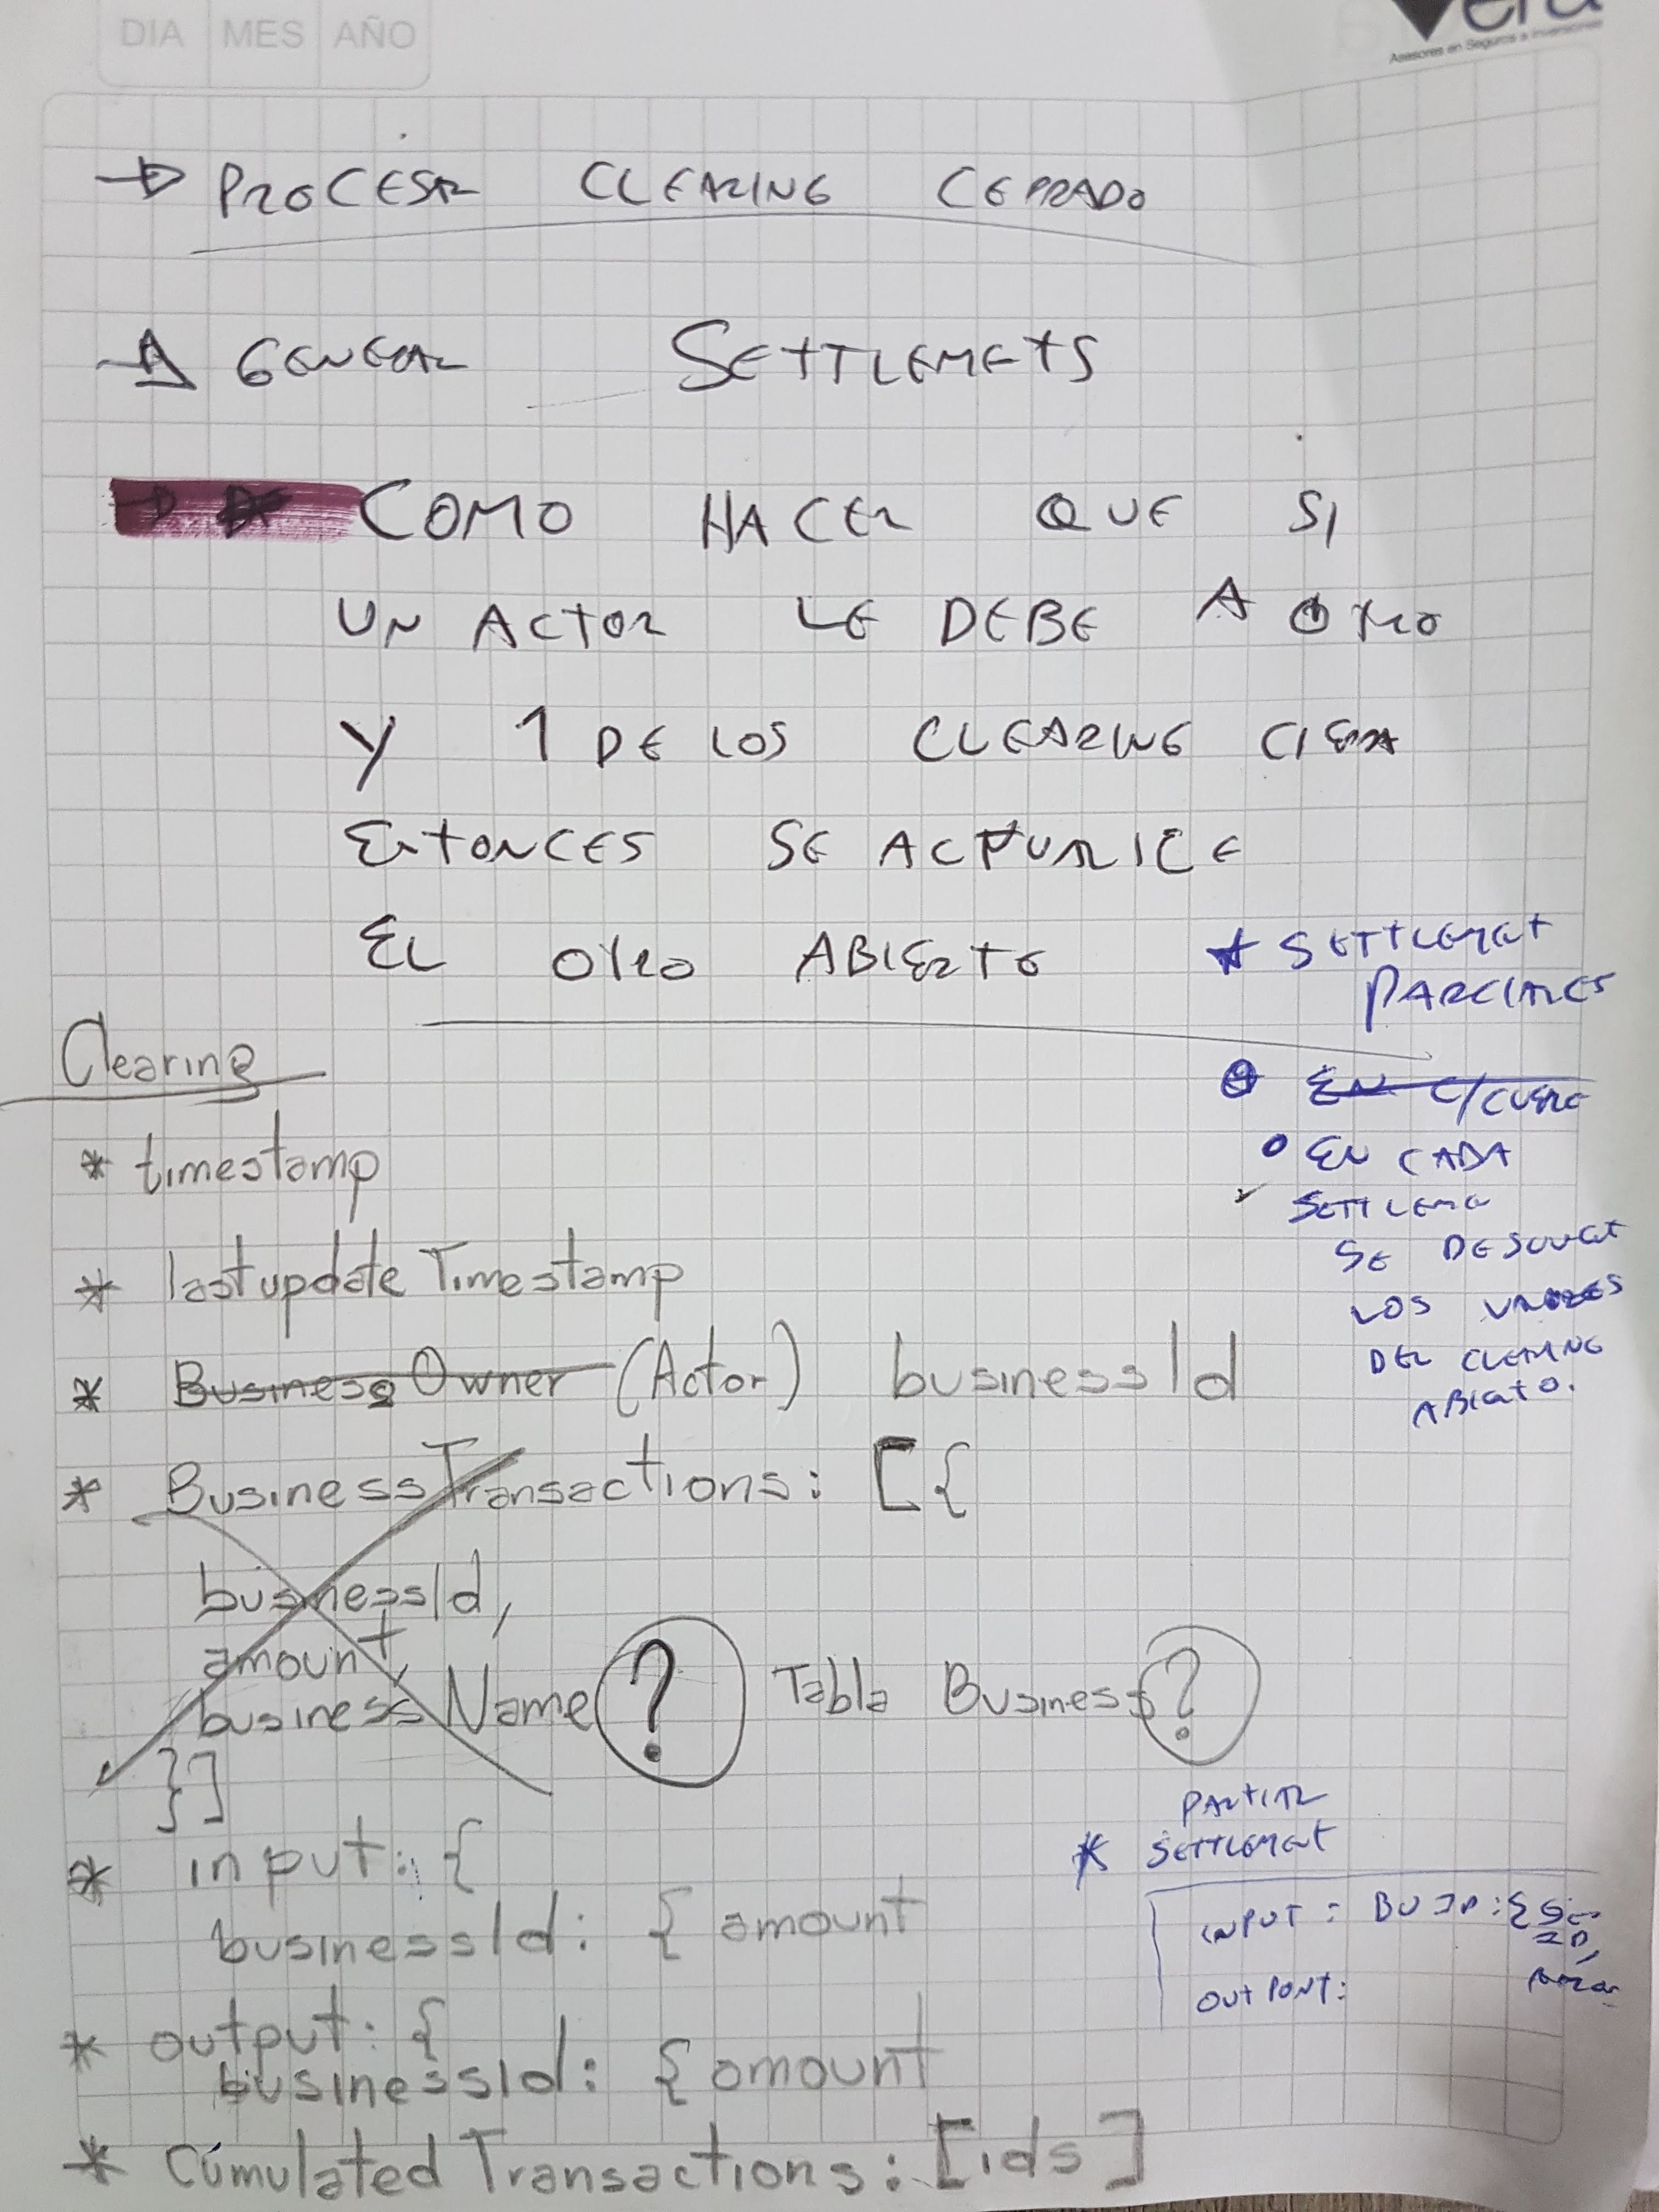 DIA MES AÑO
Asesores en Seguros e Inversiones
PROCESAR CLEARING CERRADO
GENERAR SETTLEMETS
COMO HACER QUE SI
UN ACTOR LE DEBE A OTRO
Y 1 DE LOS CLEARING CIERRA
ENTONCES SE ACTUALICE
EL OTRO ABIERTO
* SETTLEMET
PARCIALES
EN C/CUENTE
EN CADA
SETTLEME
SE DESCUENT
LOS VALORES
DEL CLEARING
ABIERTO.
Clearing
* timestamp
* lastupdate Timestamp
* Business Owner (Actor) businessId
* BusinessTransactions: [{
businessId,
amount,
business Name ? Tabla Business ?
}]
PARTIAL
* SETTLEMENT
* input: {
businessId: { amount
INPUT:
OUTPONT:
* output: {
businessId: { amount
* Cumulated Transactions: [ids]